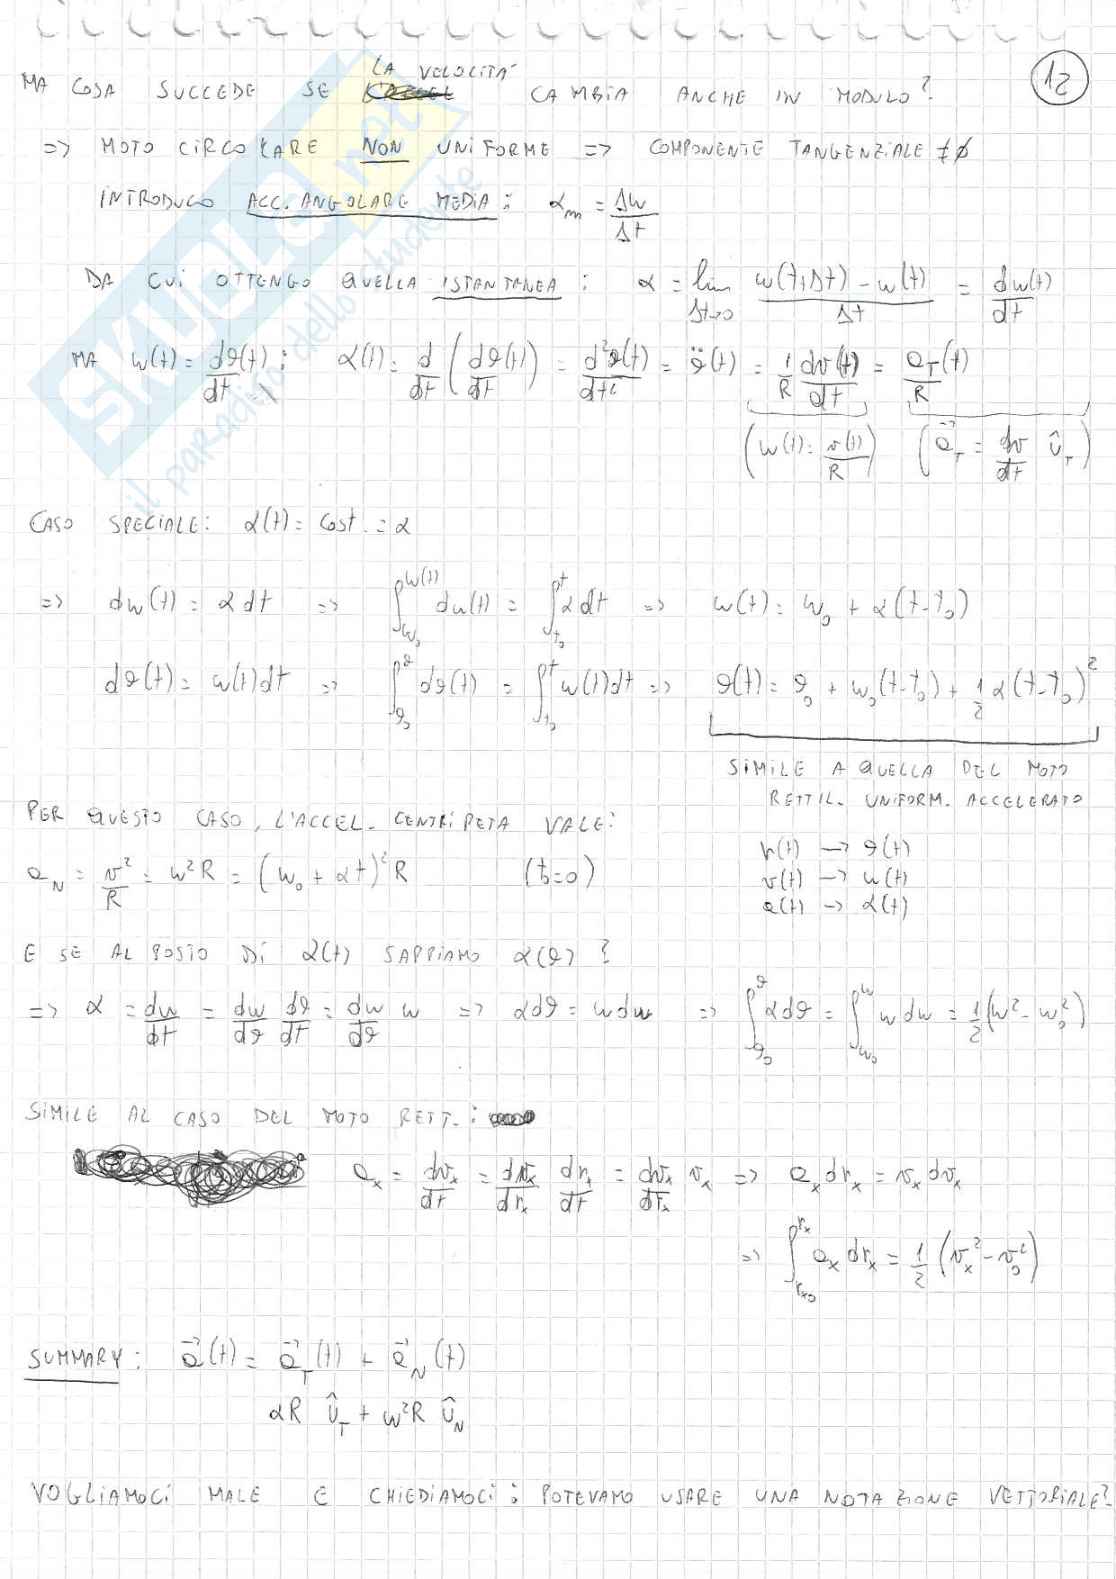 12
LA VELOCITÀ
MA COSA SUCCEDE SE CAMBIA ANCHE IN MODULO?
=> MOTO CIRCOLARE NON UNIFORME => COMPONENTE TANGENZIALE ≠ 0
INTRODUCO ACC. ANGOLARE MEDIA: αm = Δω/Δt
DA CUI OTTENGO QUELLA ISTANTANEA: α = lim Δt→0 (ω(t+Δt) - ω(t))/Δt = dω(t)/dt
MA ω(t) = dϑ(t)/dt : α(t) = d/dt (dϑ(t)/dt) = d²ϑ(t)/dt² = ϑ̈(t) = 1/R dv(t)/dt = a_T(t)/R
(ω(t) = v(t)/R) (a⃗_T = dv/dt û_T)
CASO SPECIALE: α(t) = cost. = α
=> dω(t) = α dt => ∫_{ω₀}^{ω(t)} dω(t) = ∫_{t₀}^{t} α dt => ω(t) = ω₀ + α(t-t₀)
dϑ(t) = ω(t)dt => ∫_{ϑ₀}^{ϑ} dϑ(t) = ∫_{t₀}^{t} ω(t)dt => ϑ(t) = ϑ₀ + ω₀(t-t₀) + 1/2 α(t-t₀)²
SIMILE A QUELLA DEL MOTO
RETTIL. UNIFORM. ACCELERATO
PER QUESTO CASO, L'ACCEL. CENTRIPETA VALE:
a_N = v²/R = ω²R = (ω₀ + αt)²R (t₀=0)
r(t) → ϑ(t)
v(t) → ω(t)
a(t) → α(t)
E SE AL POSTO DI α(t) SAPPIAMO α(ϑ)?
=> α = dω/dt = dω/dϑ dϑ/dt = dω/dϑ ω => αdϑ = ωdω => ∫_{ϑ₀}^{ϑ} αdϑ = ∫_{ω₀}^{ω} ωdω = 1/2(ω² - ω₀²)
SIMILE AL CASO DEL MOTO RETT.:
a_x = dv_x/dt = dv_x/dr_x dr_x/dt = dv_x/dr_x v_x => a_x dr_x = v_x dv_x
=> ∫_{r_x0}^{r_x} a_x dr_x = 1/2 (v_x² - v₀²)
SUMMARY: a⃗(t) = a⃗_T(t) + a⃗_N(t)
αR û_T + ω²R û_N
VOGLIAMOCI MALE E CHIEDIAMOCI: POTEVAMO USARE UNA NOTAZIONE VETTORIALE?
SKUOLA.net
il paradiso dello studente